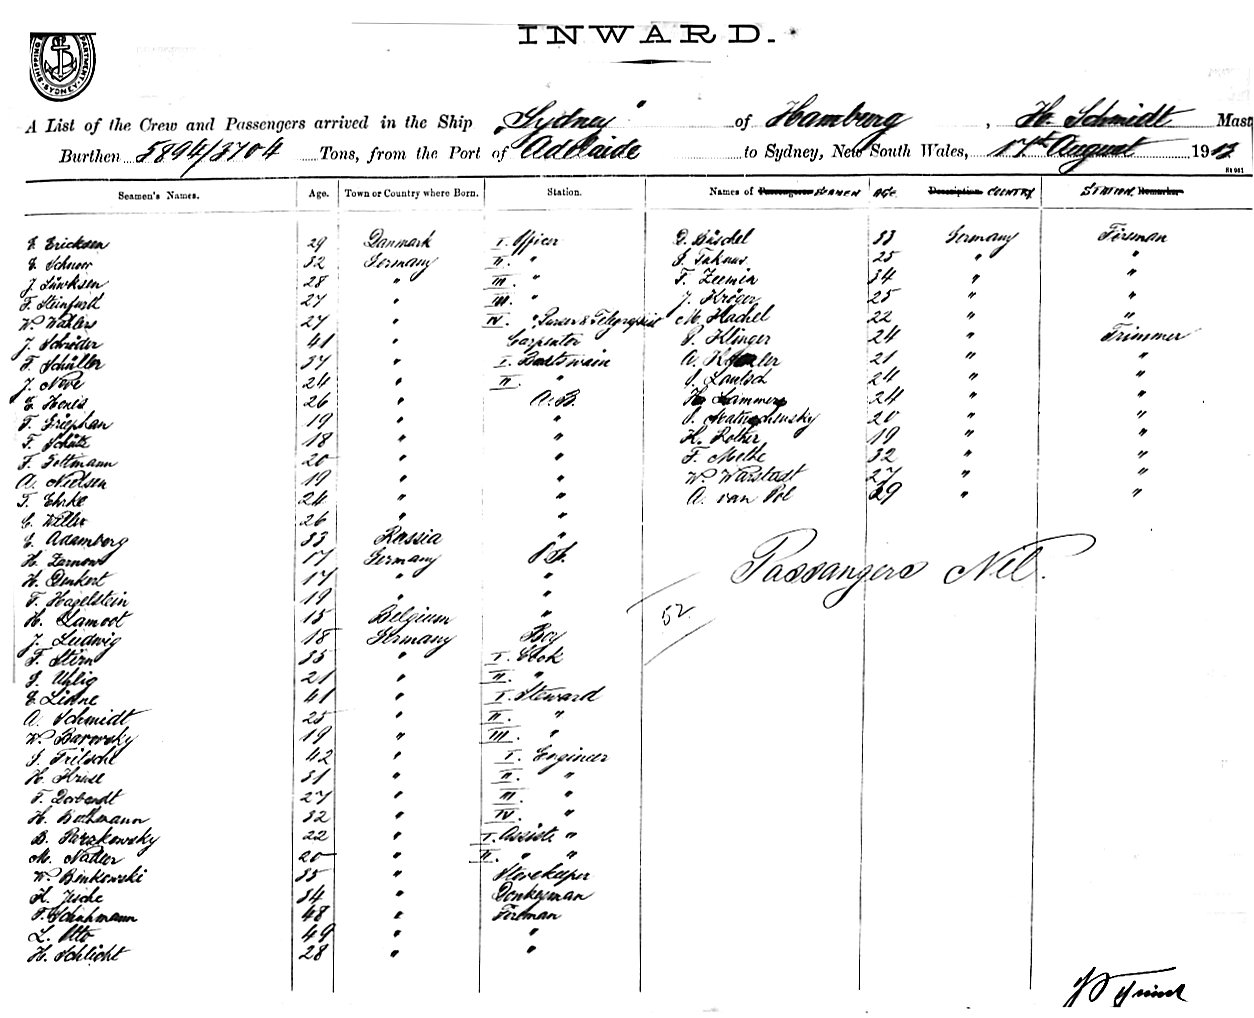 INWARD.
SHIPPING DEPARTMENT SYDNEY
A List of the Crew and Passengers arrived in the Ship "Sydney" of Hamburg, H. Schmidt Mast
Burthen 5894/3704 Tons, from the Port of Adelaide to Sydney, New South Wales, 17th August 1913
Seamen's Names. Age. Town or Country where Born. Station. Names of Passengers SEAMEN AGE. Description COUNTRY STATION. Remarks
E. Ericksen 29 Danmark I. Officer D. Büschel 33 Germany Fireman
E. Schnoor 32 Germany II. " J. 25 " "
J. 28 " III. " F. Zeemin 34 " "
F. Steinfurth 27 " IIII. " J. Kröger 25 " "
W. Wahlers 27 " IV. " Purser & Telegraphist M. Hachel 22 " "
J. Schröder 41 " Carpenter P. Klinger 24 " Trimmer
F. Schüller 37 " I. Boatswain A. 21 " "
J. Neve 24 " II. " 24 " "
E. 26 " A.B. H. Lammers 24 " "
F. Griephan 19 " " 20 " "
F. Schütz 18 " " K. Rother 19 " "
F. Goltmann 20 " " F. Methe 32 " "
A. Nielsen 19 " " W. Warstadt 27 " "
F. Ehrke 24 " " A. van Pol 29 " "
C. 26 " "
E. Adamberg 33 Russia "
H. Zarnow 17 Germany O.S.
H. Denkert 17 " "
F. Hagelstein 19 " "
H. Lamoot 15 Belgium "
J. Ludwig 18 Germany Boy
F. Stern 35 " I. Cook
J. Uhlig 21 " II. "
E. Linne 41 " I. Steward
A. Schmidt 25 " II. "
W. Barowsky 19 " III. "
J. Fritsche 42 " I. Engineer
H. Kruse 31 " II. "
F. Dorbandt 27 " III. "
H. Bothmann 32 " IV. "
B. Parzkowsky 22 " I. Assist. "
M. Nadler 20 " II. " "
W. Binkowski 35 " Storekeeper
K. Jesche 34 " Donkeyman
F. Schuhmann 48 " Fireman
L. Otto 49 " "
H. Schlicht 28 " "
Passangers Nil.
52